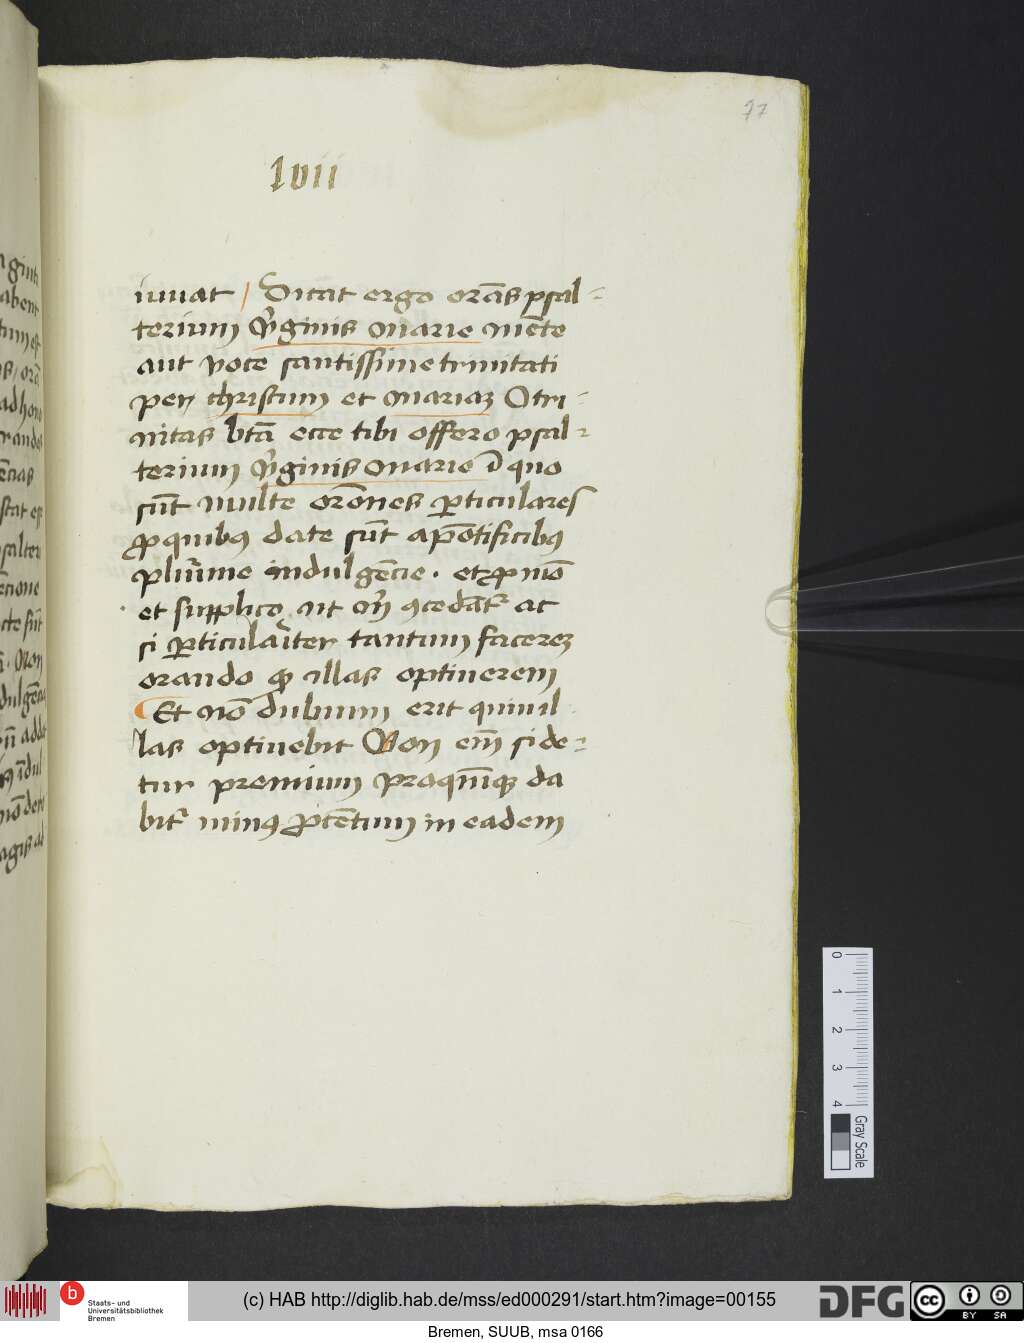 77
lvii
iuuat / Dicat ergo orās psal-
terium v̉ginis marie mēte
aut voce santissime trinitati
per christum et mariaꝫ O tri-
nitas btā ecce tibi offero psal-
terium v̉ginis marie ī quo
sūt multe orōnes ꝑticulares
ꝓ quibꝰ date sūt a pōtificibꝰ
plurime indulgēcie .
et supplico ut ꝯcedat̉ ac
si ꝑticularit̉er tantum facereꝫ
orando ꝓ illas optinerem
Et nō dubium erit quin il
las optinebit Non em̄ si de-
tur premium da
bit̉ minꝰ in eadem
0 1 2 3 4
Gray Scale
b Staats- und
Universitätsbibliothek
Bremen
(c) HAB http://diglib.hab.de/mss/ed000291/start.htm?image=00155
DFG
cc BY SA
Bremen, SUUB, msa 0166